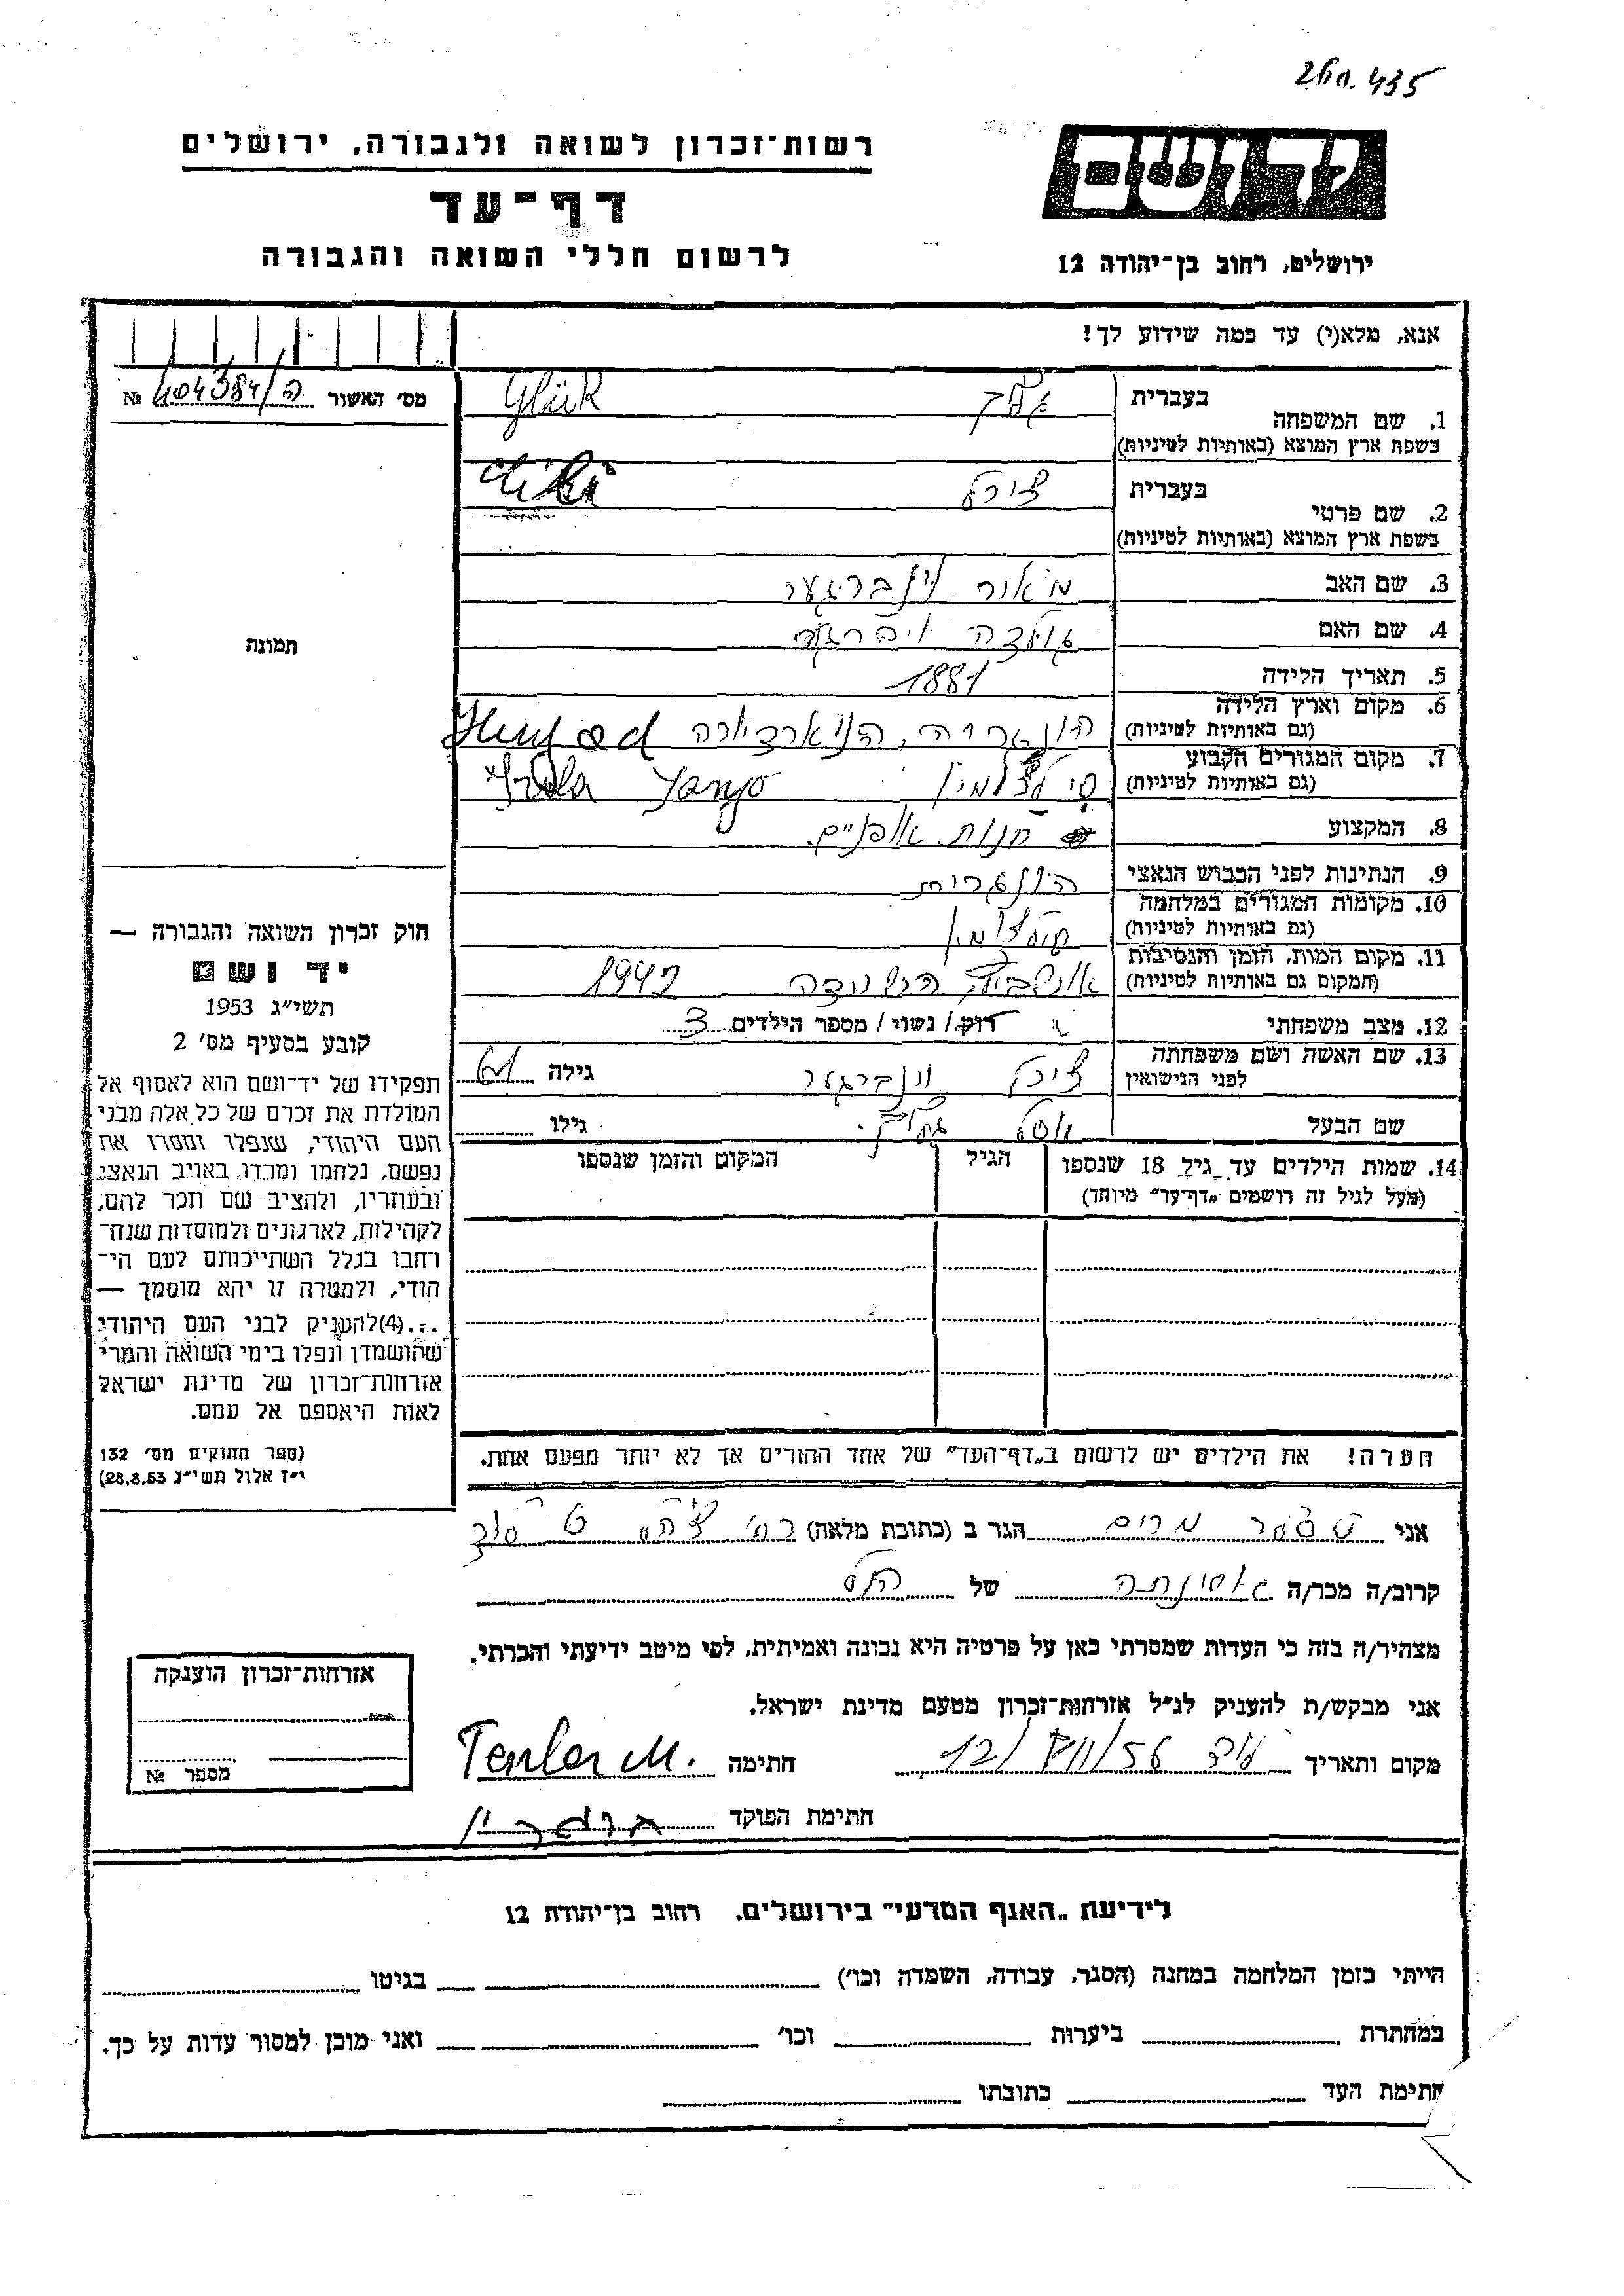 260.435
יד ושם
רשות-זכרון לשואה ולגבורה, ירושלים
דף-עד
לרשום חללי השואה והגבורה
ירושלים, רחוב בן-יהודה 12
אנא, מלא(י) עד כמה שידוע לך!
מס' האשור ה/404384 №
תמונה
חוק זכרון השואה והגבורה —
יד ושם
תשי"ג 1953
קובע בסעיף מס' 2
תפקידו של יד-ושם הוא לאסוף אל
המולדת את זכרם של כל אלה מבני
העם היהודי, שנפלו ומסרו את
נפשם, נלחמו ומרדו באויב הנאצי
ובעוזריו, ולהציב שם וזכר להם,
לקהילות, לארגונים ולמוסדות שנח-
רחבו בגלל השתייכותם לעם הי-
הודי, ולמטרה זו יהא מוסמך —
...(4) להעניק לבני העם היהודי
שהושמדו ונפלו בימי השואה והמרי
אזרחות-זכרון של מדינת ישראל
לאות היאספם אל עמם.
(ספר החוקים מס' 132
י"ז אלול תשי"ג 28.8.53)
1. שם המשפחה בעברית גליק Glük
בשפת ארץ המוצא (באותיות לטיניות)
2. שם פרטי בעברית צירל
בשפת ארץ המוצא (באותיות לטיניות)
3. שם האב מאור
4. שם האם
5. תאריך הלידה 1881
6. מקום וארץ הלידה הונגריה,
(גם באותיות לטיניות)
7. מקום המגורים הקבוע
(גם באותיות לטיניות)
8. המקצוע חנות אופניים.
9. הנתינות לפני הכבוש הנאצי הונגרית
10. מקומות המגורים במלחמה
(גם באותיות לטיניות)
11. מקום המות, הזמן והנסיבות 1942
(המקום גם באותיות לטיניות)
12. מצב משפחתי רוק/נשוי/מספר הילדים 3
13. שם האשה ושם משפחתה צירל גילה 61
לפני הנישואין
שם הבעל גילו
14. שמות הילדים עד גיל 18 שנספו הגיל המקום והזמן שנספו
(מעל לגיל זה רושמים "דף-עד" מיוחד)
הערה! את הילדים יש לרשום ב"דף-העד" של אחד ההורים אך לא יותר מפעם אחת.
אני טנלר מרים הגר ב (כתובת מלאה)
קרוב/ה מכר/ה של
מצהיר/ה בזה כי העדות שמסרתי כאן על פרטיה היא נכונה ואמיתית, לפי מיטב ידיעתי והכרתי.
אני מבקש/ת להעניק לנ"ל אזרחות-זכרון מטעם מדינת ישראל.
מקום ותאריך חתימה Tenler M.
חתימת הפוקד
אזרחות-זכרון הוענקה
מספר №
לידיעת "האגף המדעי" בירושלים, רחוב בן-יהודה 12
הייתי בזמן המלחמה במחנה (הסגר, עבודה, השמדה וכו') בגיטו
במחתרת ביערות וכו' ואני מוכן למסור עדות על כך.
חתימת העד כתובתו